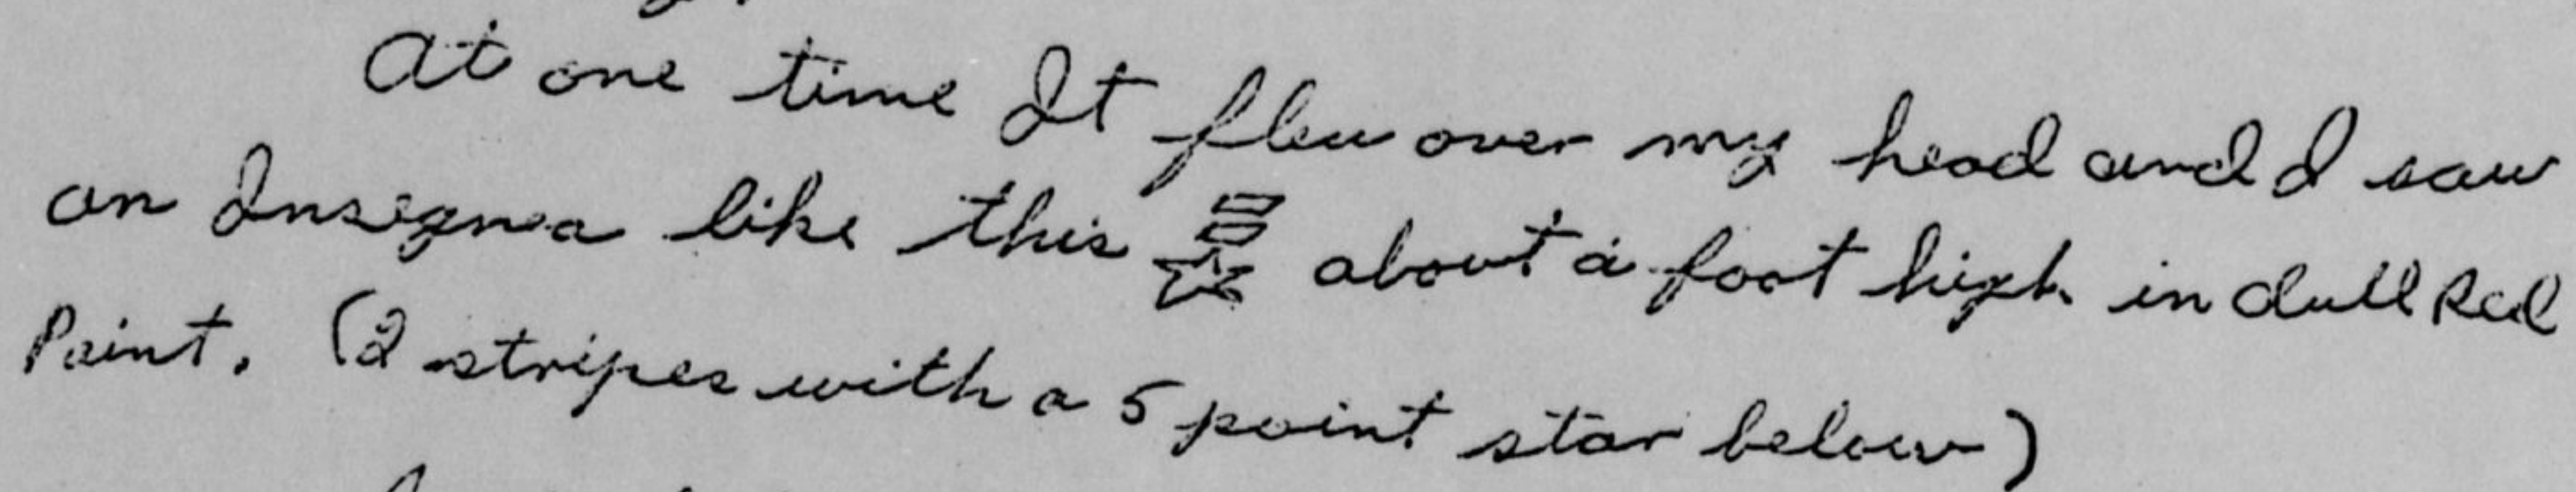 At one time It flew over my head and I saw
an Insignea like this about a foot high in dull Red
Paint. (2 stripes with a 5 point star below)